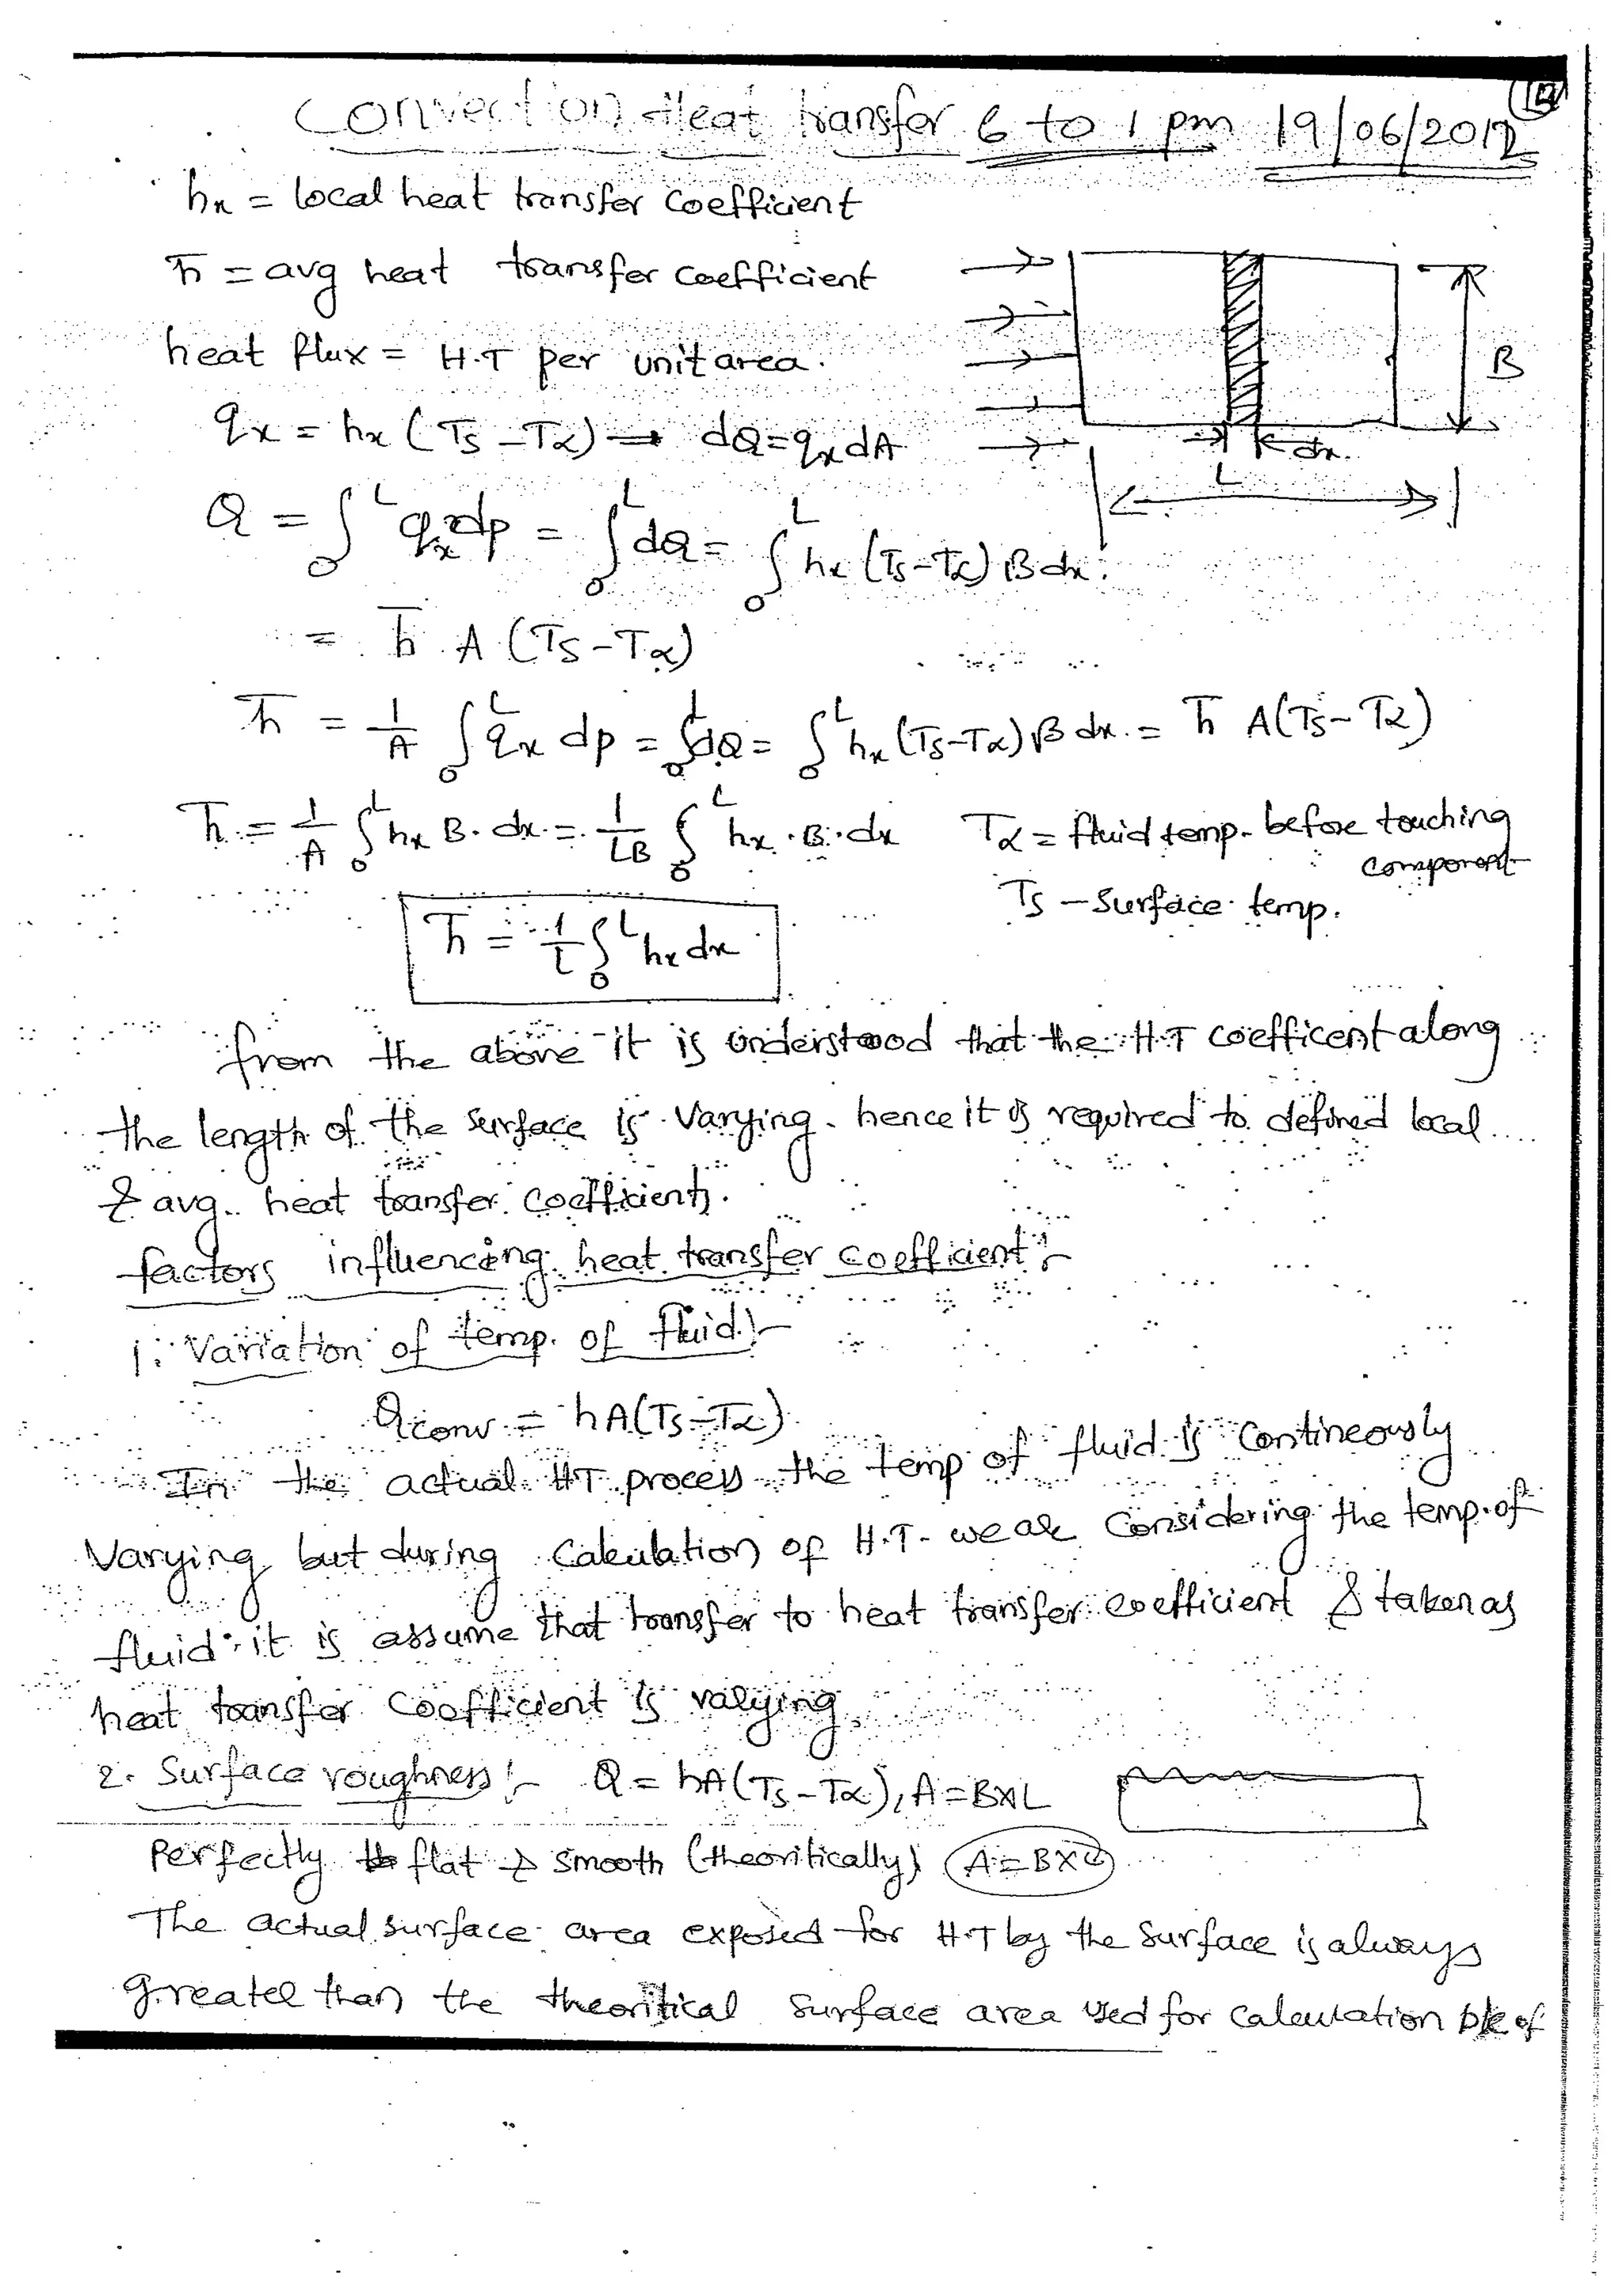 Convection Heat transfer 6 to 1 pm 19/06/2012
hx = local heat transfer coefficient
h̅ = avg heat transfer coefficient
heat flux = H.T per unit area.
B
qx = hx (Ts - Tα) → dQ = qx dA
dx.
L
Q = ∫₀ᴸ qx dp = ∫₀ᴸ dQ = ∫₀ᴸ hx (Ts - Tα) B dx.
= h̅ A (Ts - Tα)
h̅ = 1/A ∫₀ᴸ qx dp = ∫₀ᴸ dQ = ∫₀ᴸ hx (Ts - Tα) B dx. = h̅ A(Ts - Tα)
h̅ = 1/A ∫₀ᴸ hx B. dx. = 1/LB ∫₀ᴸ hx . B. dx
Tα = fluid temp. before touching
component
Ts - Surface temp.
h̅ = 1/L ∫₀ᴸ hx dx
from the above it is understood that the H.T coefficent along
the length of the surface is varying. hence it is required to defined local
& avg. heat transfer coefficients.
factors influencing heat transfer coefficient :-
1. Variation of temp. of fluid :-
Qconv. = hA(Ts - Tα)
In the actual HT process the temp of fluid is Contineously
Varying but during Calculation of H.T. we are Considering the temp. of
fluid. it is assume that transfer to heat transfer coefficient & taken as
heat transfer Coefficient is varying.
2. Surface roughness :- Q = hA(Ts - Tα), A = B×L
Perfectly flat & smooth (theoritically) A = B×L
The actual surface area exposed for H.T by the surface is always
greater than the theoritical surface area used for calculation b/c of